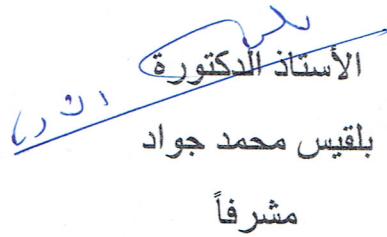 الأستاذ الدكتورة
بلقيس محمد جواد
مشرفاً